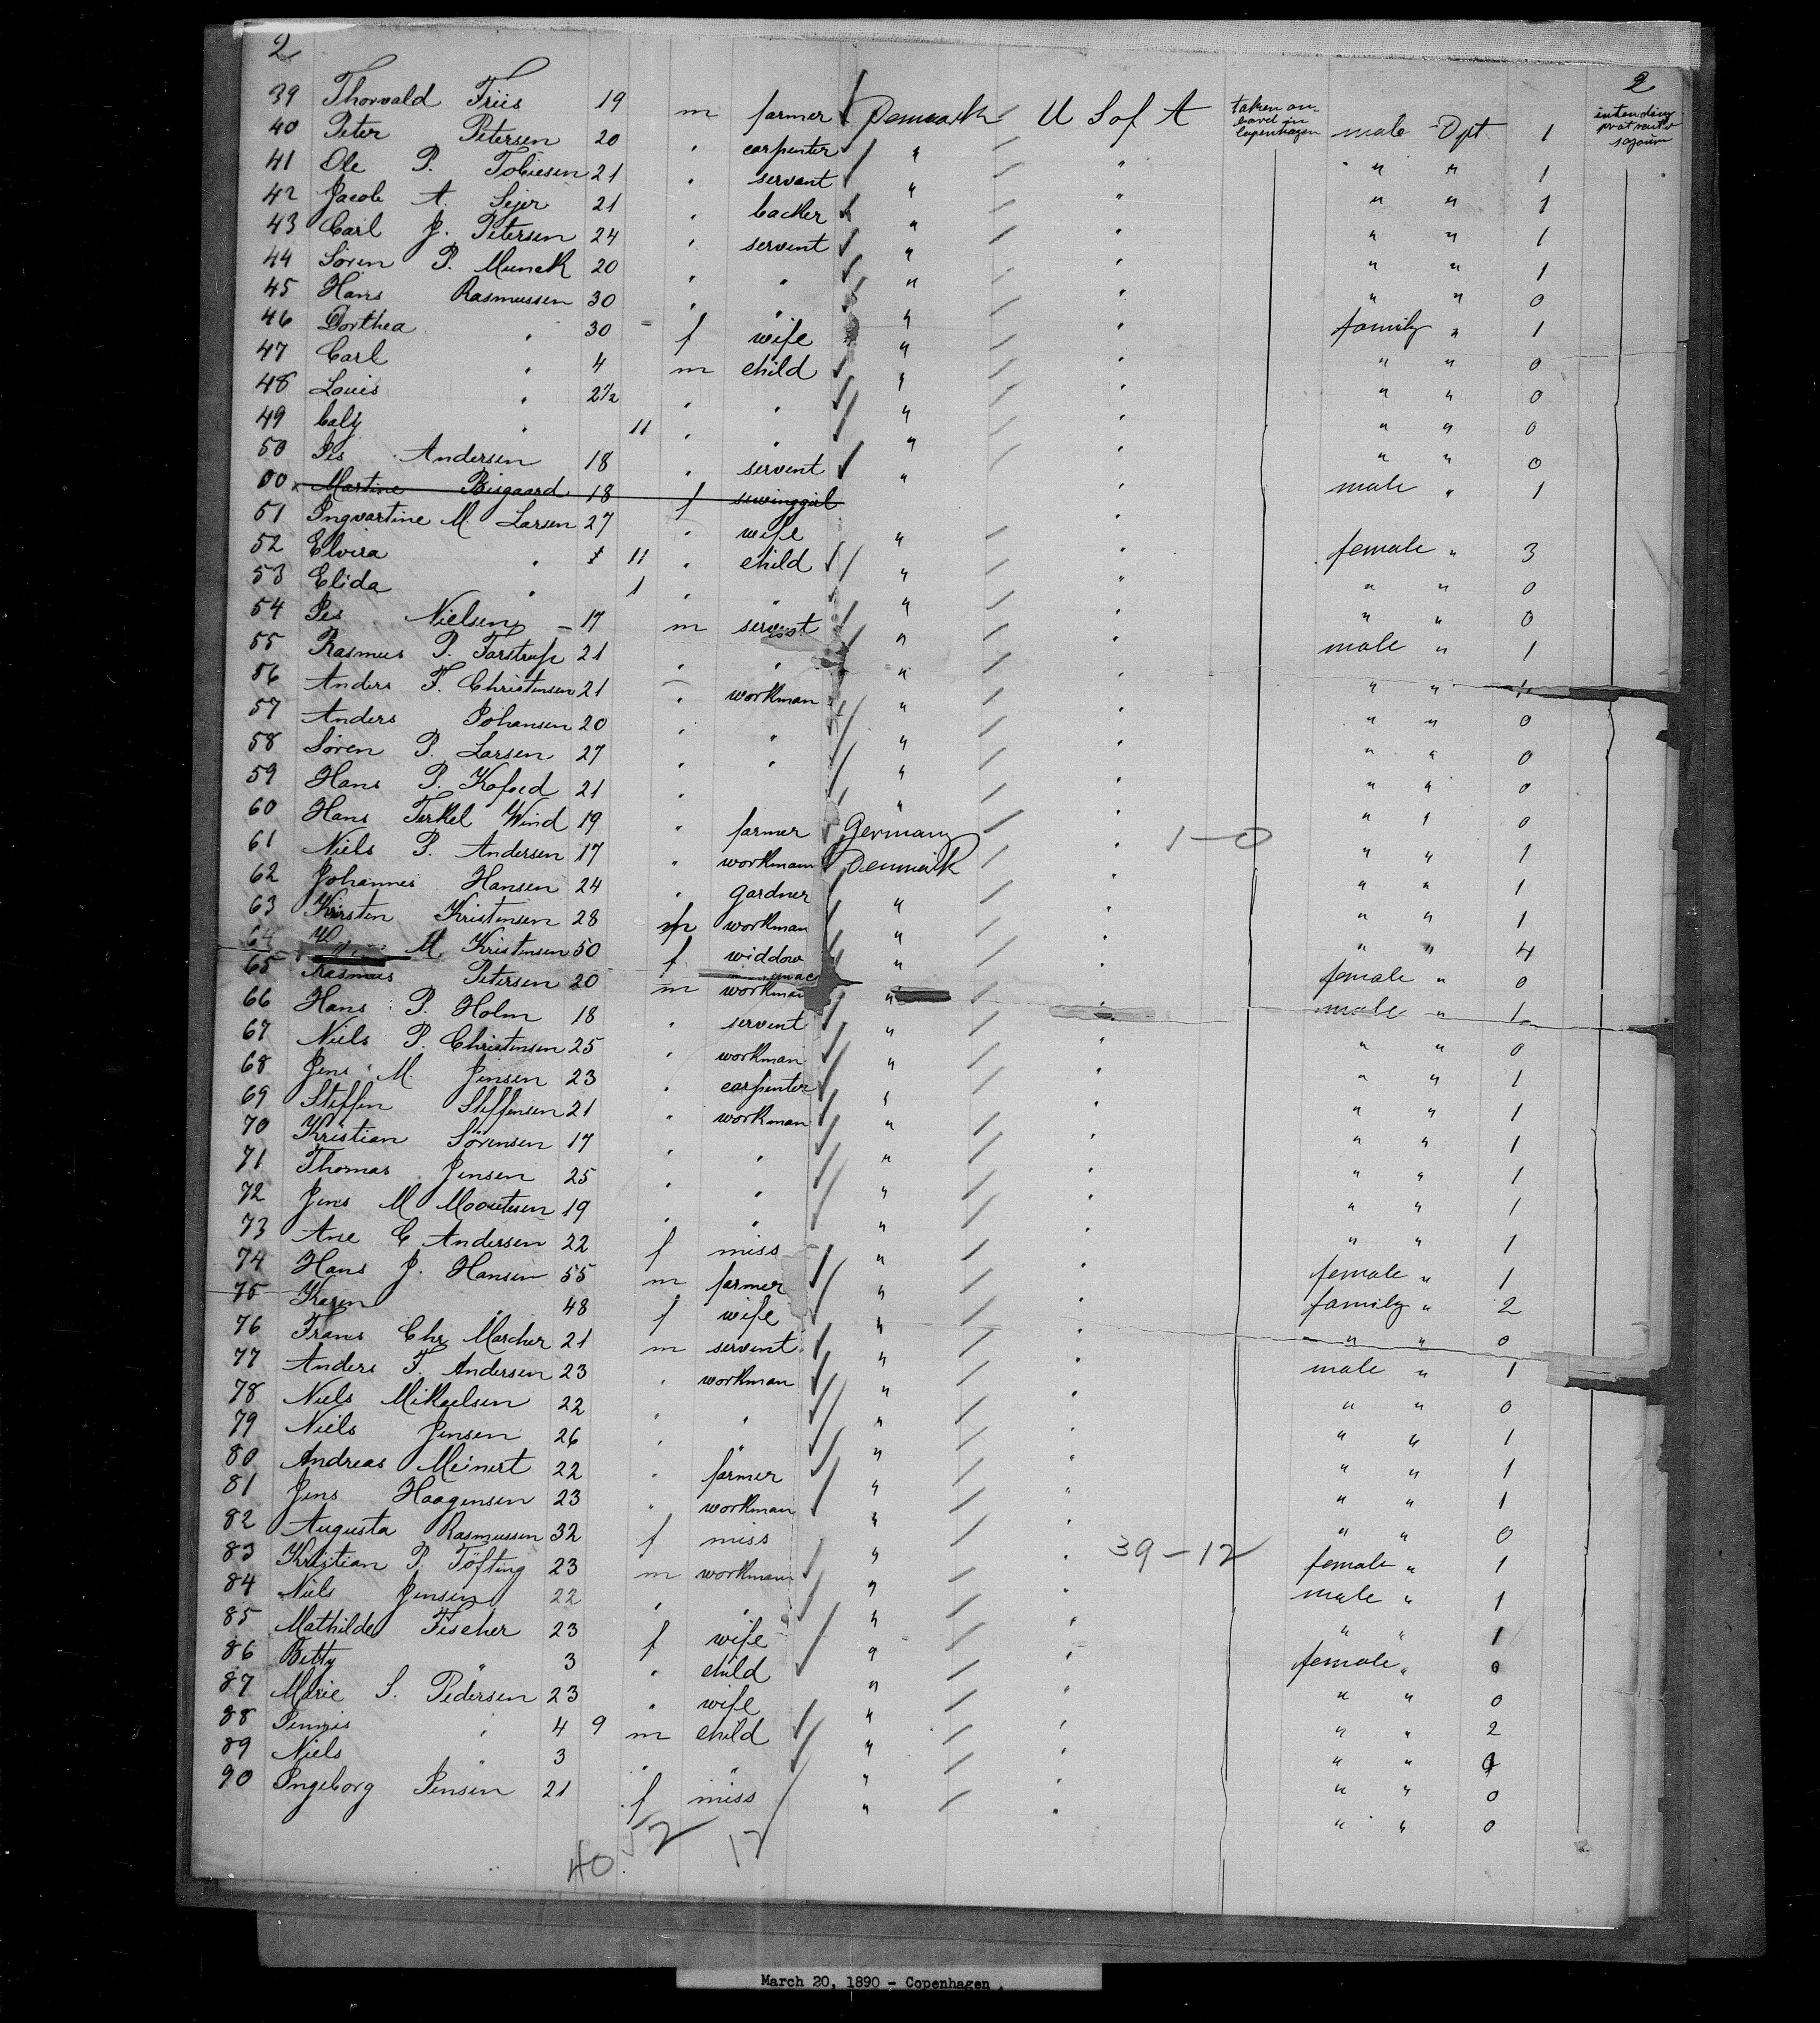 2
2
39 Thorvald Friis 19 m farmer Denmark U S of A taken on board in Copenhagen male Dpt 1 intending protracted sojourn
40 Peter Petersen 20 " carpenter " " " " 1
41 Ole P. Tobiesen 21 " servant " " " " 1
42 Jacob A. Sejer 21 " backer " " " " 1
43 Carl J. Petersen 24 " servent " " " " 1
44 Sören P. Munck 20 " " " " " " 0
45 Hans Rasmussen 30 " " " " family " 1
46 Dorthea " 30 f wife " " " " 0
47 Carl " 4 m child " " " " 0
48 Louis " 2½ " " " " " " 0
49 " 11 " " " " " " 0
50 Jes Andersen 18 " servent " " male " 1
00 x Martine Bisgaard 18 f sewinggirl
51 Ingvartine M. Larsen 27 " wife " " female " 3
52 Elvira " 11 " child " " " " 0
53 Elida " 1 " " " " " " 0
54 Jes Nielsen 17 m servent " " male " 1
55 Rasmus P. Farstrup 21 " " " " " "
56 Anders F. Christensen 21 " workman " " " " 0
57 Anders Johansen 20 " " " " " " 0
58 Sören P. Larsen 27 " " " " " " 0
59 Hans P. Kofoed 21 " " " " " 0
60 Hans Terkel Wind 19 " farmer Germany " 1-0 " " 1
61 Niels P. Andersen 17 " workmann Denmark " " " 1
62 Johannes Hansen 24 " gardner " " " " 1
63 Kirsten Kristensen 28 m workman " " " " 4
64 M. Kristensen 50 f widdow " " female " 0
65 Rasmus Petersen 20 m workman " " male " 1
66 Hans P. Holm 18 " servent " " " " 0
67 Niels P. Christensen 25 " workman " " " " 1
68 Jens M. Jensen 23 " carpenter " " " " 1
69 Steffen Steffensen 21 " workman " " " " 1
70 Kristian Sörensen 17 " " " " " " 1
71 Thomas Jensen 25 " " " " " " 1
72 Jens M 19 " " " " " " 1
73 Ane C Andersen 22 f miss " " female " 1
74 Hans J. Hansen 55 m farmer " " family " 2
75 Karen " 48 f wife " " " " 0
76 Frans Chr. Marcher 21 m servent " " male " 1
77 Anders F. Andersen 23 " workman " " " " 0
78 Niels Mikaelsen 22 " " " " " " 1
79 Niels Jensen 26 " " " " " " 1
80 Andreas Meinert 22 " farmer " " " " 1
81 Jens Haagensen 23 " workman " " " " 0
82 Augusta Rasmussen 32 f miss " " 39-12 female " 1
83 Kristian P. Töfting 23 m workmann " " male " 1
84 Niels Jensen 22 " " " " " " 1
85 Mathilde Fischer 23 f wife " " female " 0
86 Betty " 3 " child " " " " 0
87 Marie S. Pedersen 23 " wife " " " " 2
88 " 4 9 m child " " " "
89 Niels " 3 " " " " " " 0
90 Ingeborg Jensen 21 f miss " " " " 0
40 52 12
March 20, 1890 - Copenhagen.